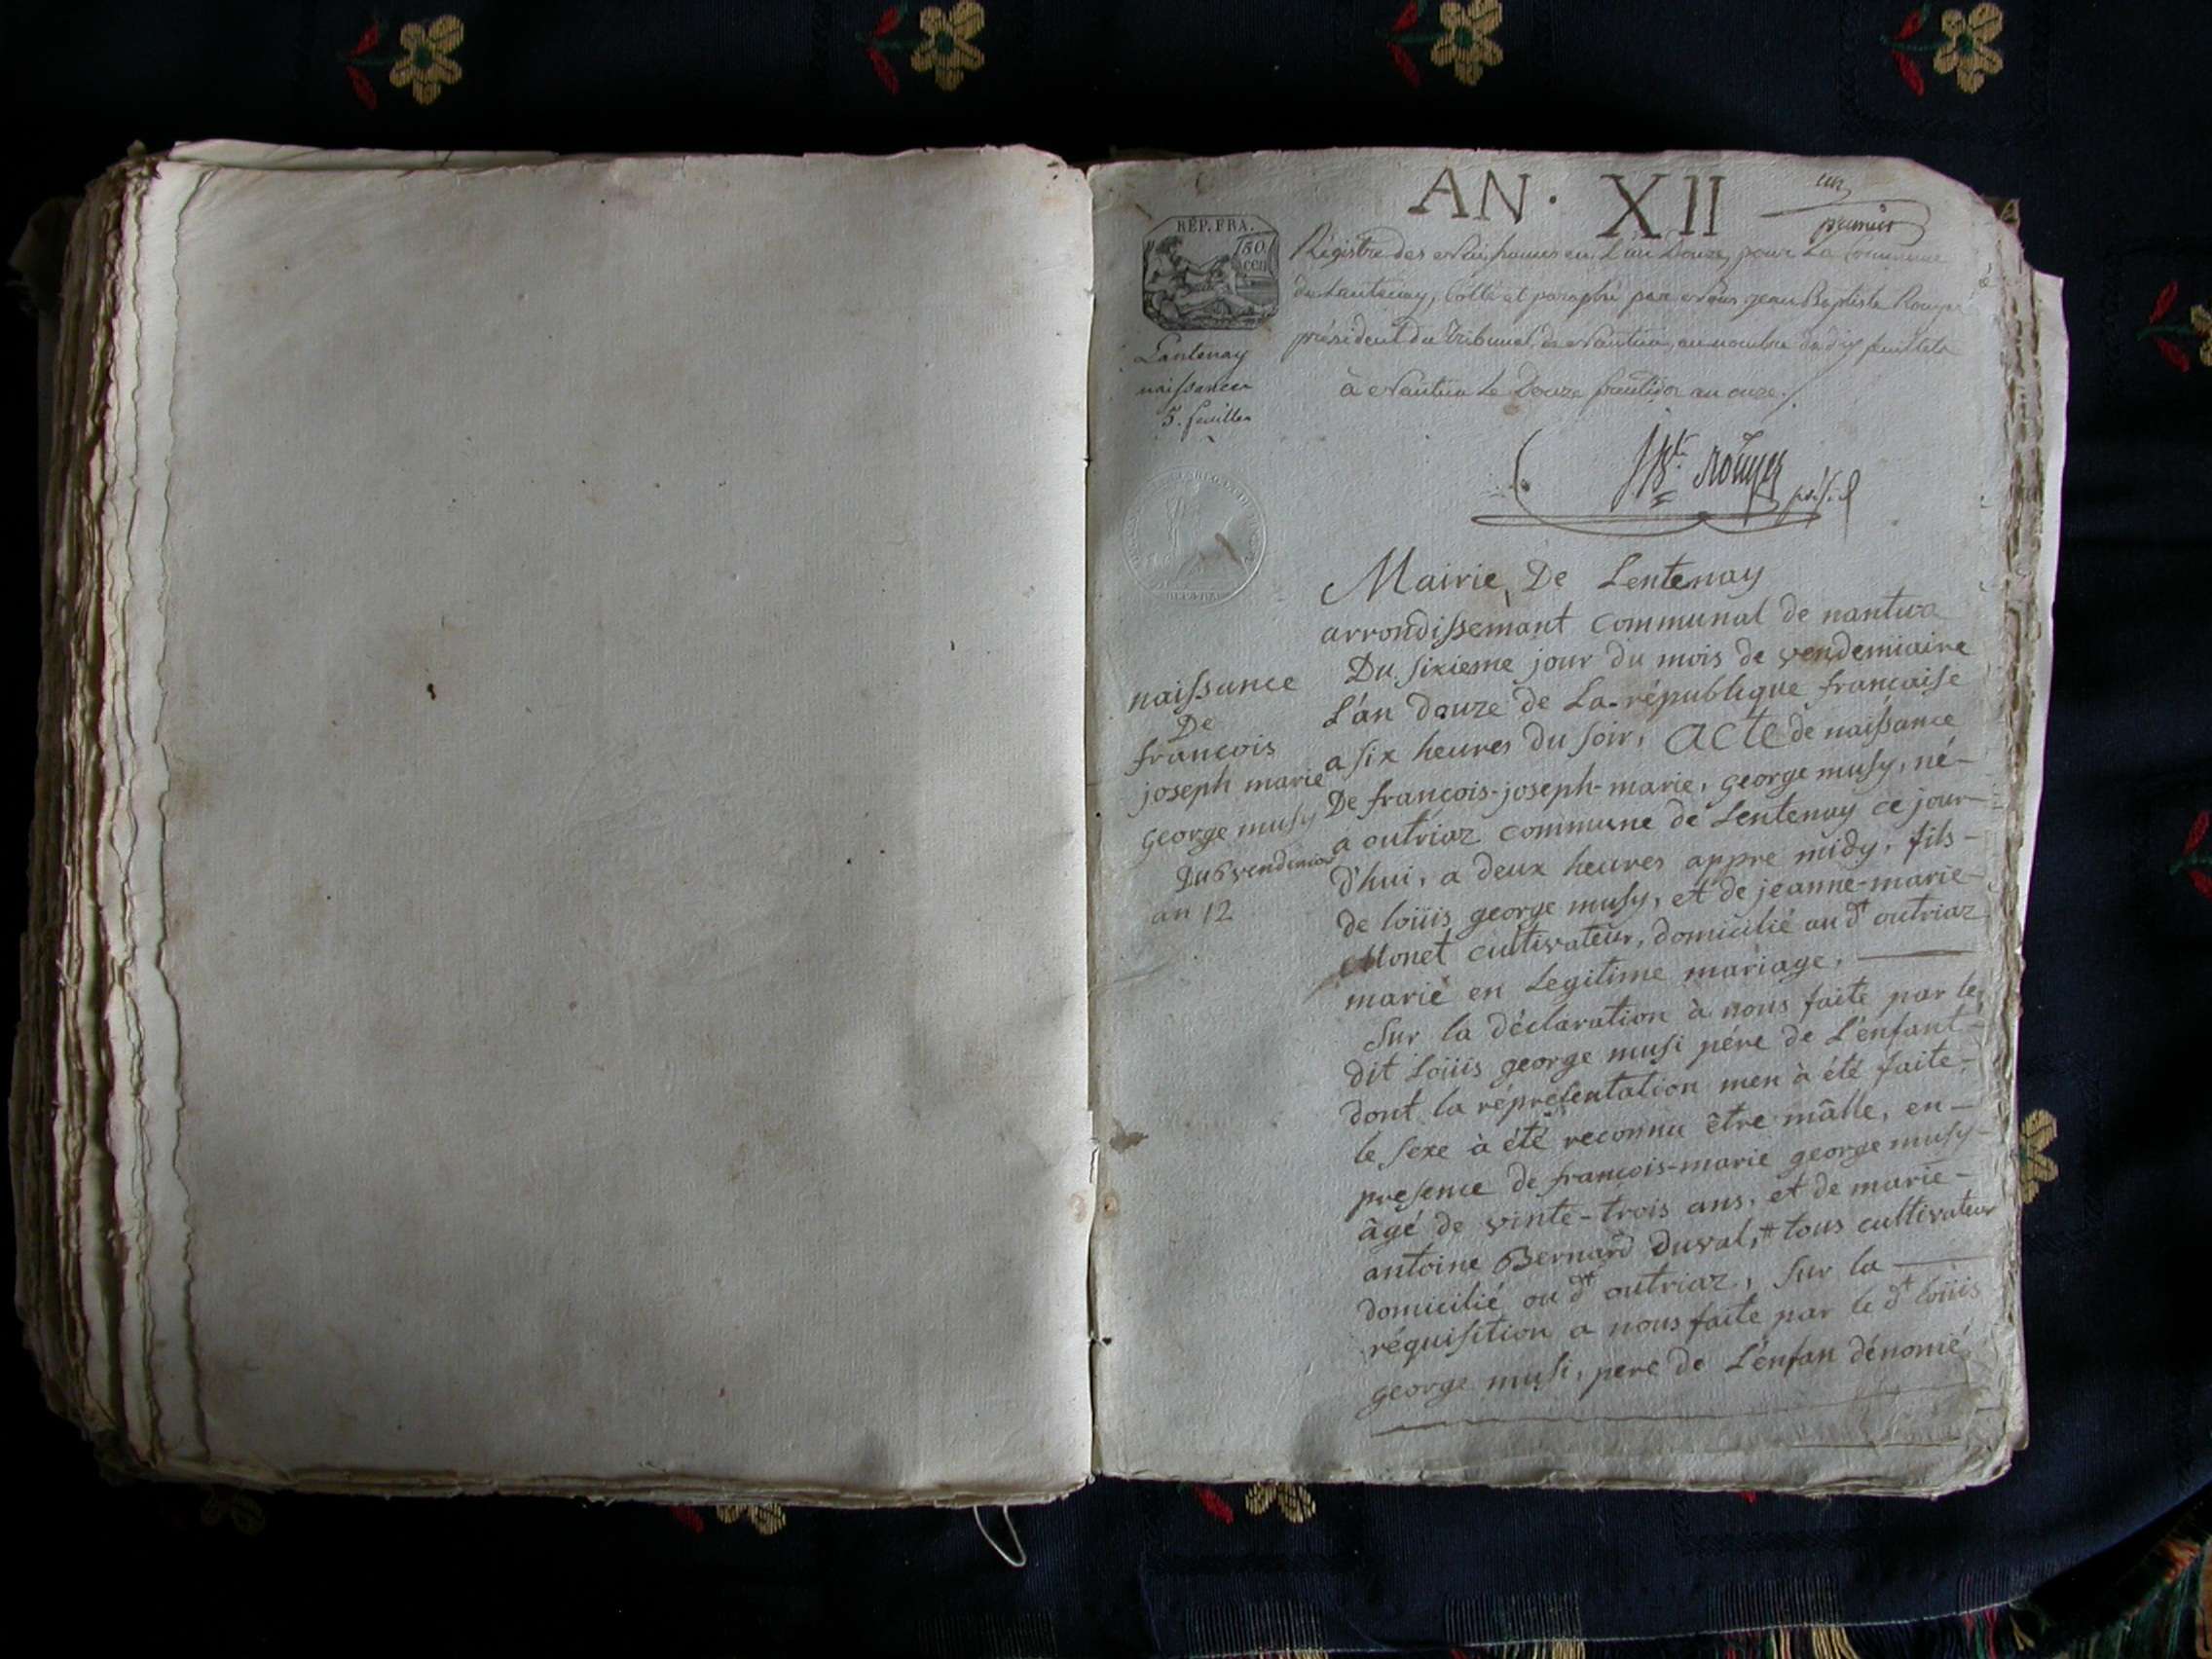 AN. XII
un
premier
RÉP. FRA.
50
cen
Régistre des Naissances en l'an Douze, pour La Commune
de Lantenay, Cotté et paraphé par Nous jean Baptiste Rouyer
président du Tribunal de Nantua, au nombre de dix feuillets
à Nantua le Douze fructidor an onze.
Lantenay
naissances
5. feuilles
JBte Rouyer présid
Mairie De Lentenay
arrondissemant communal de nantua
Du sixieme jour du mois de vendemiaire
L'an douze de La république francaise
a six heures du soir, acte de naissance
De francois-joseph-marie, george musy, né-
a outriaz commune de Lentenay ce jour-
d'hui, a deux heures appre midy, fils-
de loüis george musy, et de jeanne-marie-
Monet cultivateur, domicilié au dt outriaz
marié en Legitime mariage,
Sur la déclaration à nous faite par le
dit Loüis george musi pére de L'enfant-
dont la réprésentation men à été faite,
le sexe à été reconnu être mâlle, en-
presence de francois-marie george musy-
âgé de vinte-trois ans, et de marie-
antoine Bernard duval,# tous cultivateur
domicilié ou dt outriaz, Sur la
réquisition a nous faite par le dt loüis
george musi, pere de L'enfan dénomé
naissance
De
francois
joseph marie
george musy
Du 6 vendemiar
an 12